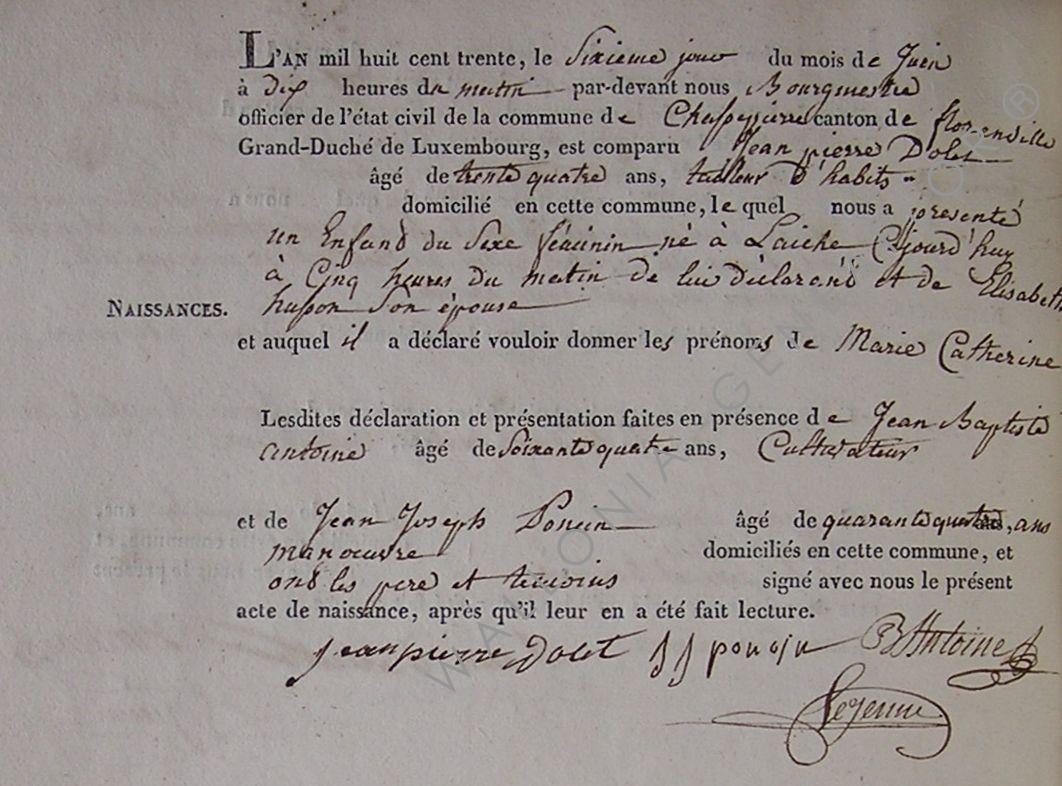 L'AN mil huit cent trente, le Sixieme jour du mois de Juin
à dix heures du matin par-devant nous Bourgmestre
officier de l'état civil de la commune de Chassepierre canton de florenville
Grand-Duché de Luxembourg, est comparu Jean pierre Dolet
âgé de trente quatre ans, tailleur d'habits
domicilié en cette commune, le quel nous a presenté
un Enfand du Sexe féminin né à Laiche Cejourd'huy
à Cinq heures du matin de lui déclarand et de Elisabeth
NAISSANCES. husson Son épouse
et auquel il a déclaré vouloir donner les prénoms de Marie Catherine
Lesdites déclaration et présentation faites en présence de Jean Baptiste
antoine âgé de Soixante quatre ans, Cultivateur
et de Jean Joseph Poncin âgé de quarante quatre ans
manoeuvre domiciliés en cette commune, et
ond les pere et temoins signé avec nous le présent
acte de naissance, après qu'il leur en a été fait lecture.
jean pierre Dolet J J poncin B Antoine
Lejeune